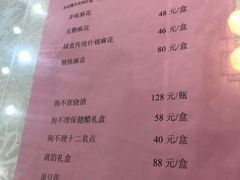 姜味麻花 48 元/盒
无糖麻花 46 元/盒
绿盒传统什锦麻花 80 元/盒
糖槟麻花
狗不理烧酒 128 元/瓶
狗不理保健醋礼盒 58 元/盒
狗不理十二名点 40 元/盒
礼盒 88 元/盒